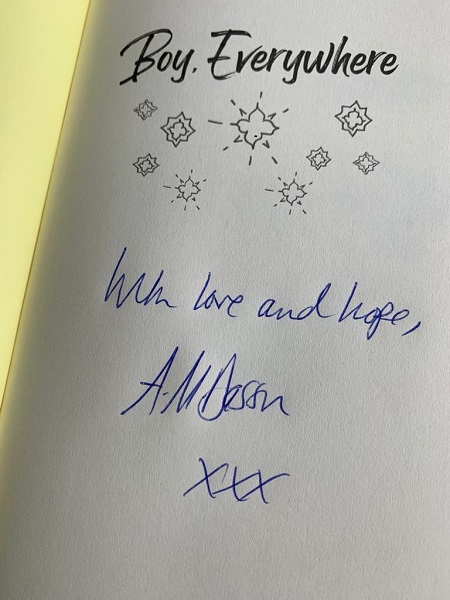 Boy, Everywhere
With love and hope,
A.M Dassu
xxx